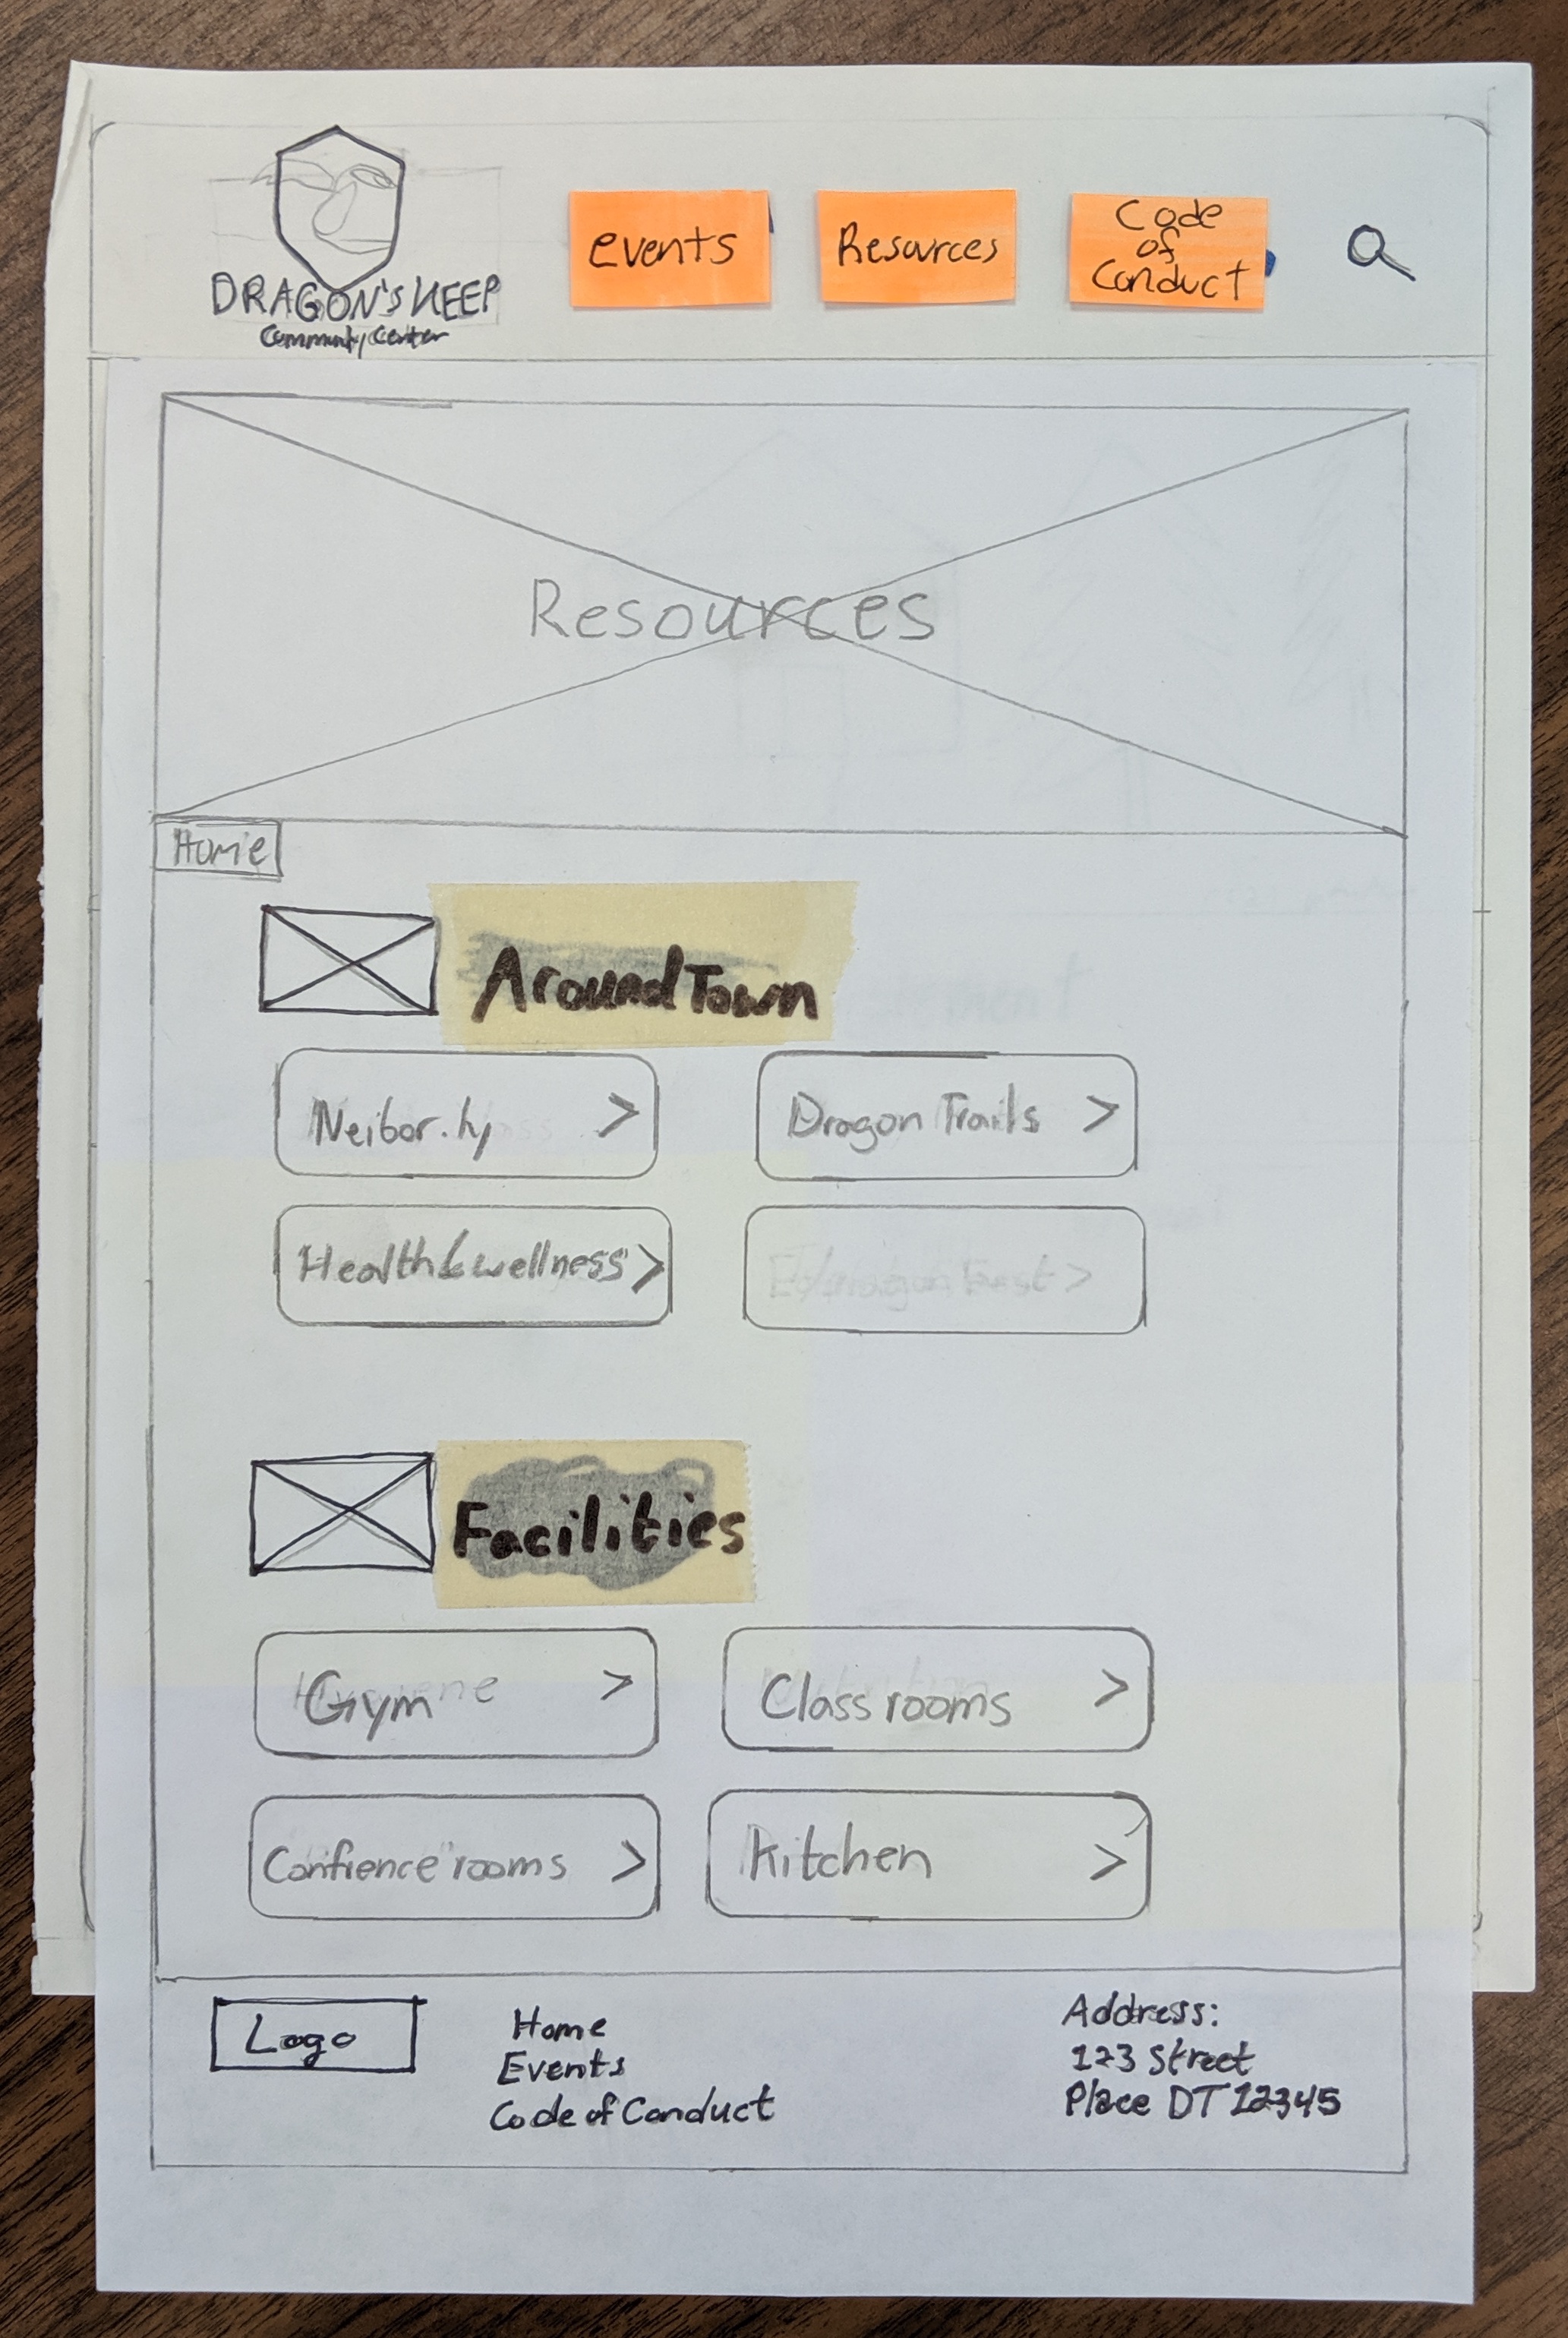 DRAGON'S KEEP
Community Center
events
Resources
Code
of
Conduct
Resources
Home
Around Town
Neibor.ly
>
Dragon Trails
>
Health & wellness
>
>
Facilities
Gym
>
Class rooms
>
Confrence rooms
>
Kitchen
>
Logo
Home
Events
Code of Conduct
Address:
123 Street
Place DT 12345